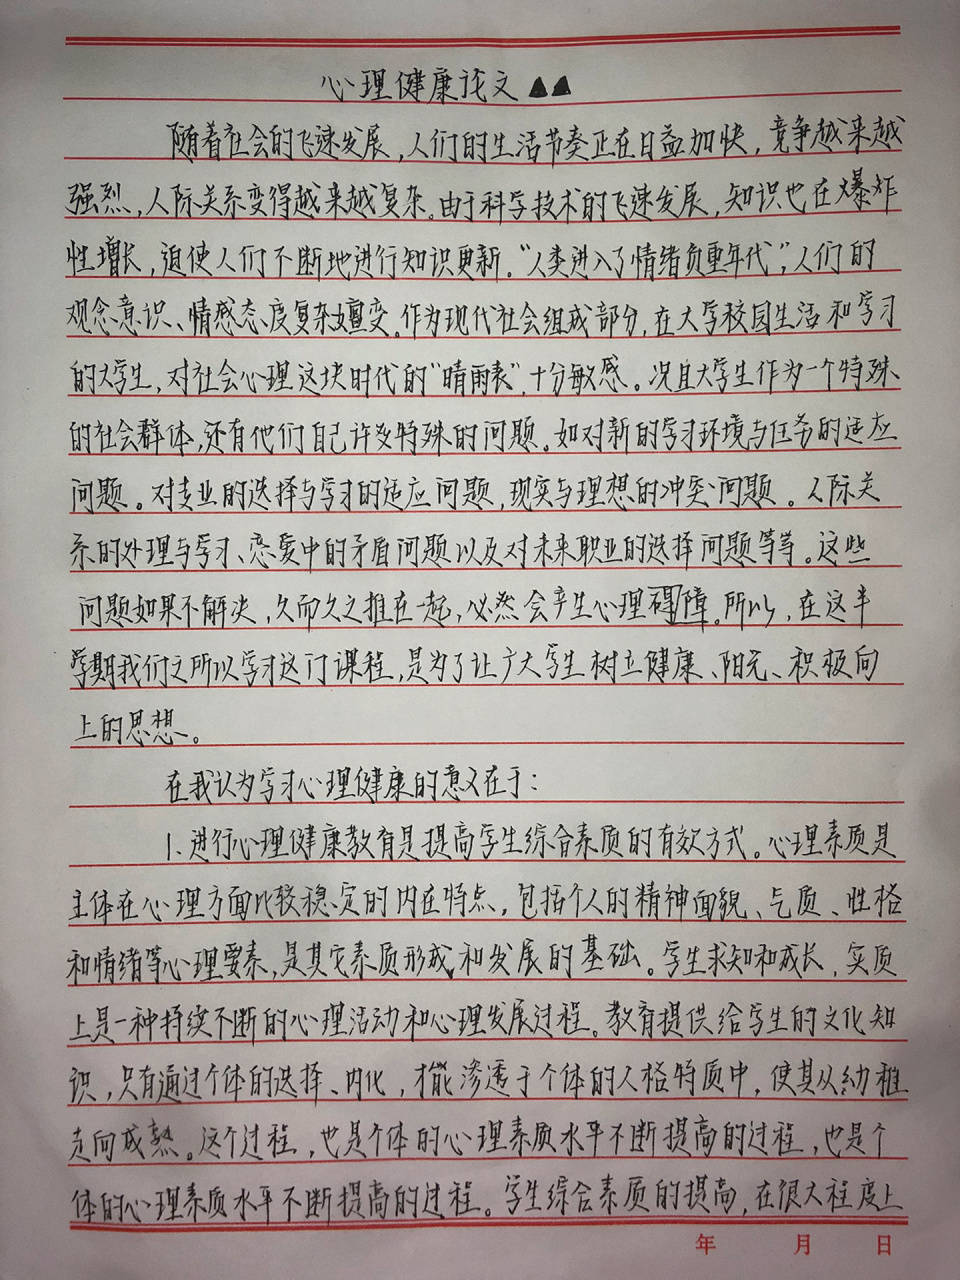 心理健康论文▲▲
随着社会的飞速发展,人们的生活节奏正在日益加快,竞争越来越
强烈,人际关系变得越来越复杂。由于科学技术的飞速发展,知识也在爆炸
性增长,迫使人们不断地进行知识更新。“人类进入了情绪负重年代”,人们的
观念意识、情感态度复杂嬗变。作为现代社会组成部分,在大学校园生活和学习
的大学生,对社会心理这块时代的“晴雨表”,十分敏感。况且大学生作为一个特殊
的社会群体,还有他们自己许多特殊的问题。如对新的学习环境与任务的适应
问题。对专业的选择与学习的适应问题,现实与理想的冲突问题。人际关
系的处理与学习、恋爱中的矛盾问题以及对未来职业的选择问题等等。这些
问题如果不解决,久而久之推在一起,必然会产生心理碍障。所以,在这半
学期我们之所以学习这门课程,是为了让广大学生树立健康、阳光、积极向
上的思想。
在我认为学习心理健康的意义在于:
1.进行心理健康教育是提高学生综合素质的有效方式。心理素质是
主体在心理方面比较稳定的内在特点,包括个人的精神面貌、气质、性格
和情绪等心理要素,是其它素质形成和发展的基础。学生求知和成长,实质
上是一种持续不断的心理活动和心理发展过程。教育提供给学生的文化知
识,只有通过个体的选择、内化,才能渗透于个体的人格特质中,使其从幼稚
走向成熟。这个过程,也是个体的心理素质水平不断提高的过程,也是个
体的心理素质水平不断提高的过程。学生综合素质的提高,在很大程度上
年 月 日